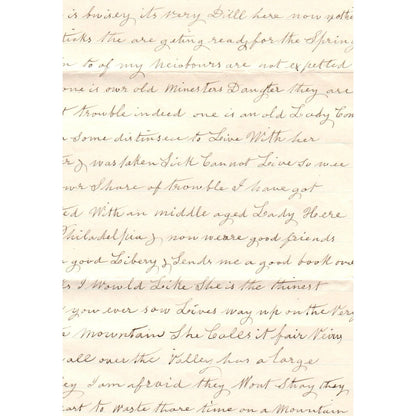 is buisey its very Dill here now
ticks the are gating ready for the Spring
to of my Neibours are not expetted
one is owr old Minesters Daugter they are
trouble indeed one is an old Lady
Some distinsea to Live With her
& was taken Sick Cannot Live So wee
owr Share of trouble I have got
With an middle aged Lady Heere
Philadelpia & now weare good friends
good Libery & Sends me a good book
I Would Licke She is the thinest
you ever sow Lives way up on the Very
Mountain She Calls it fair View
all over the Valley has a large
I am afraid they Wont Stay they
to Waste thare time on a Mountain